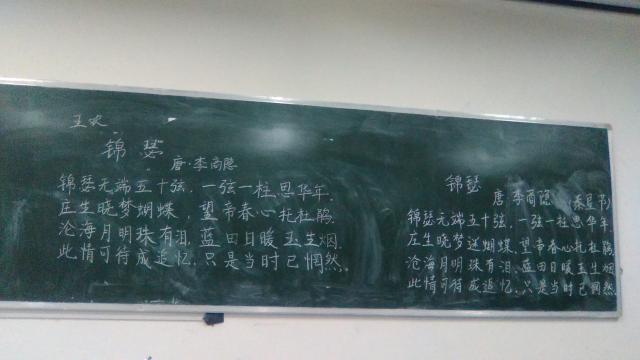 王欢
锦瑟
唐·李商隐
锦瑟无端五十弦,一弦一柱思华年.
庄生晓梦蝴蝶,望帝春心托杜鹃.
沧海月明珠有泪,蓝田日暖玉生烟.
此情可待成追忆,只是当时已惘然.
锦瑟
唐 李商隐
锦瑟无端五十弦,一弦一柱思华年
庄生晓梦迷蝴蝶,望帝春心托杜鹃
沧海月明珠有泪,蓝田日暖玉生烟
此情可待成追忆,只是当时已惘然